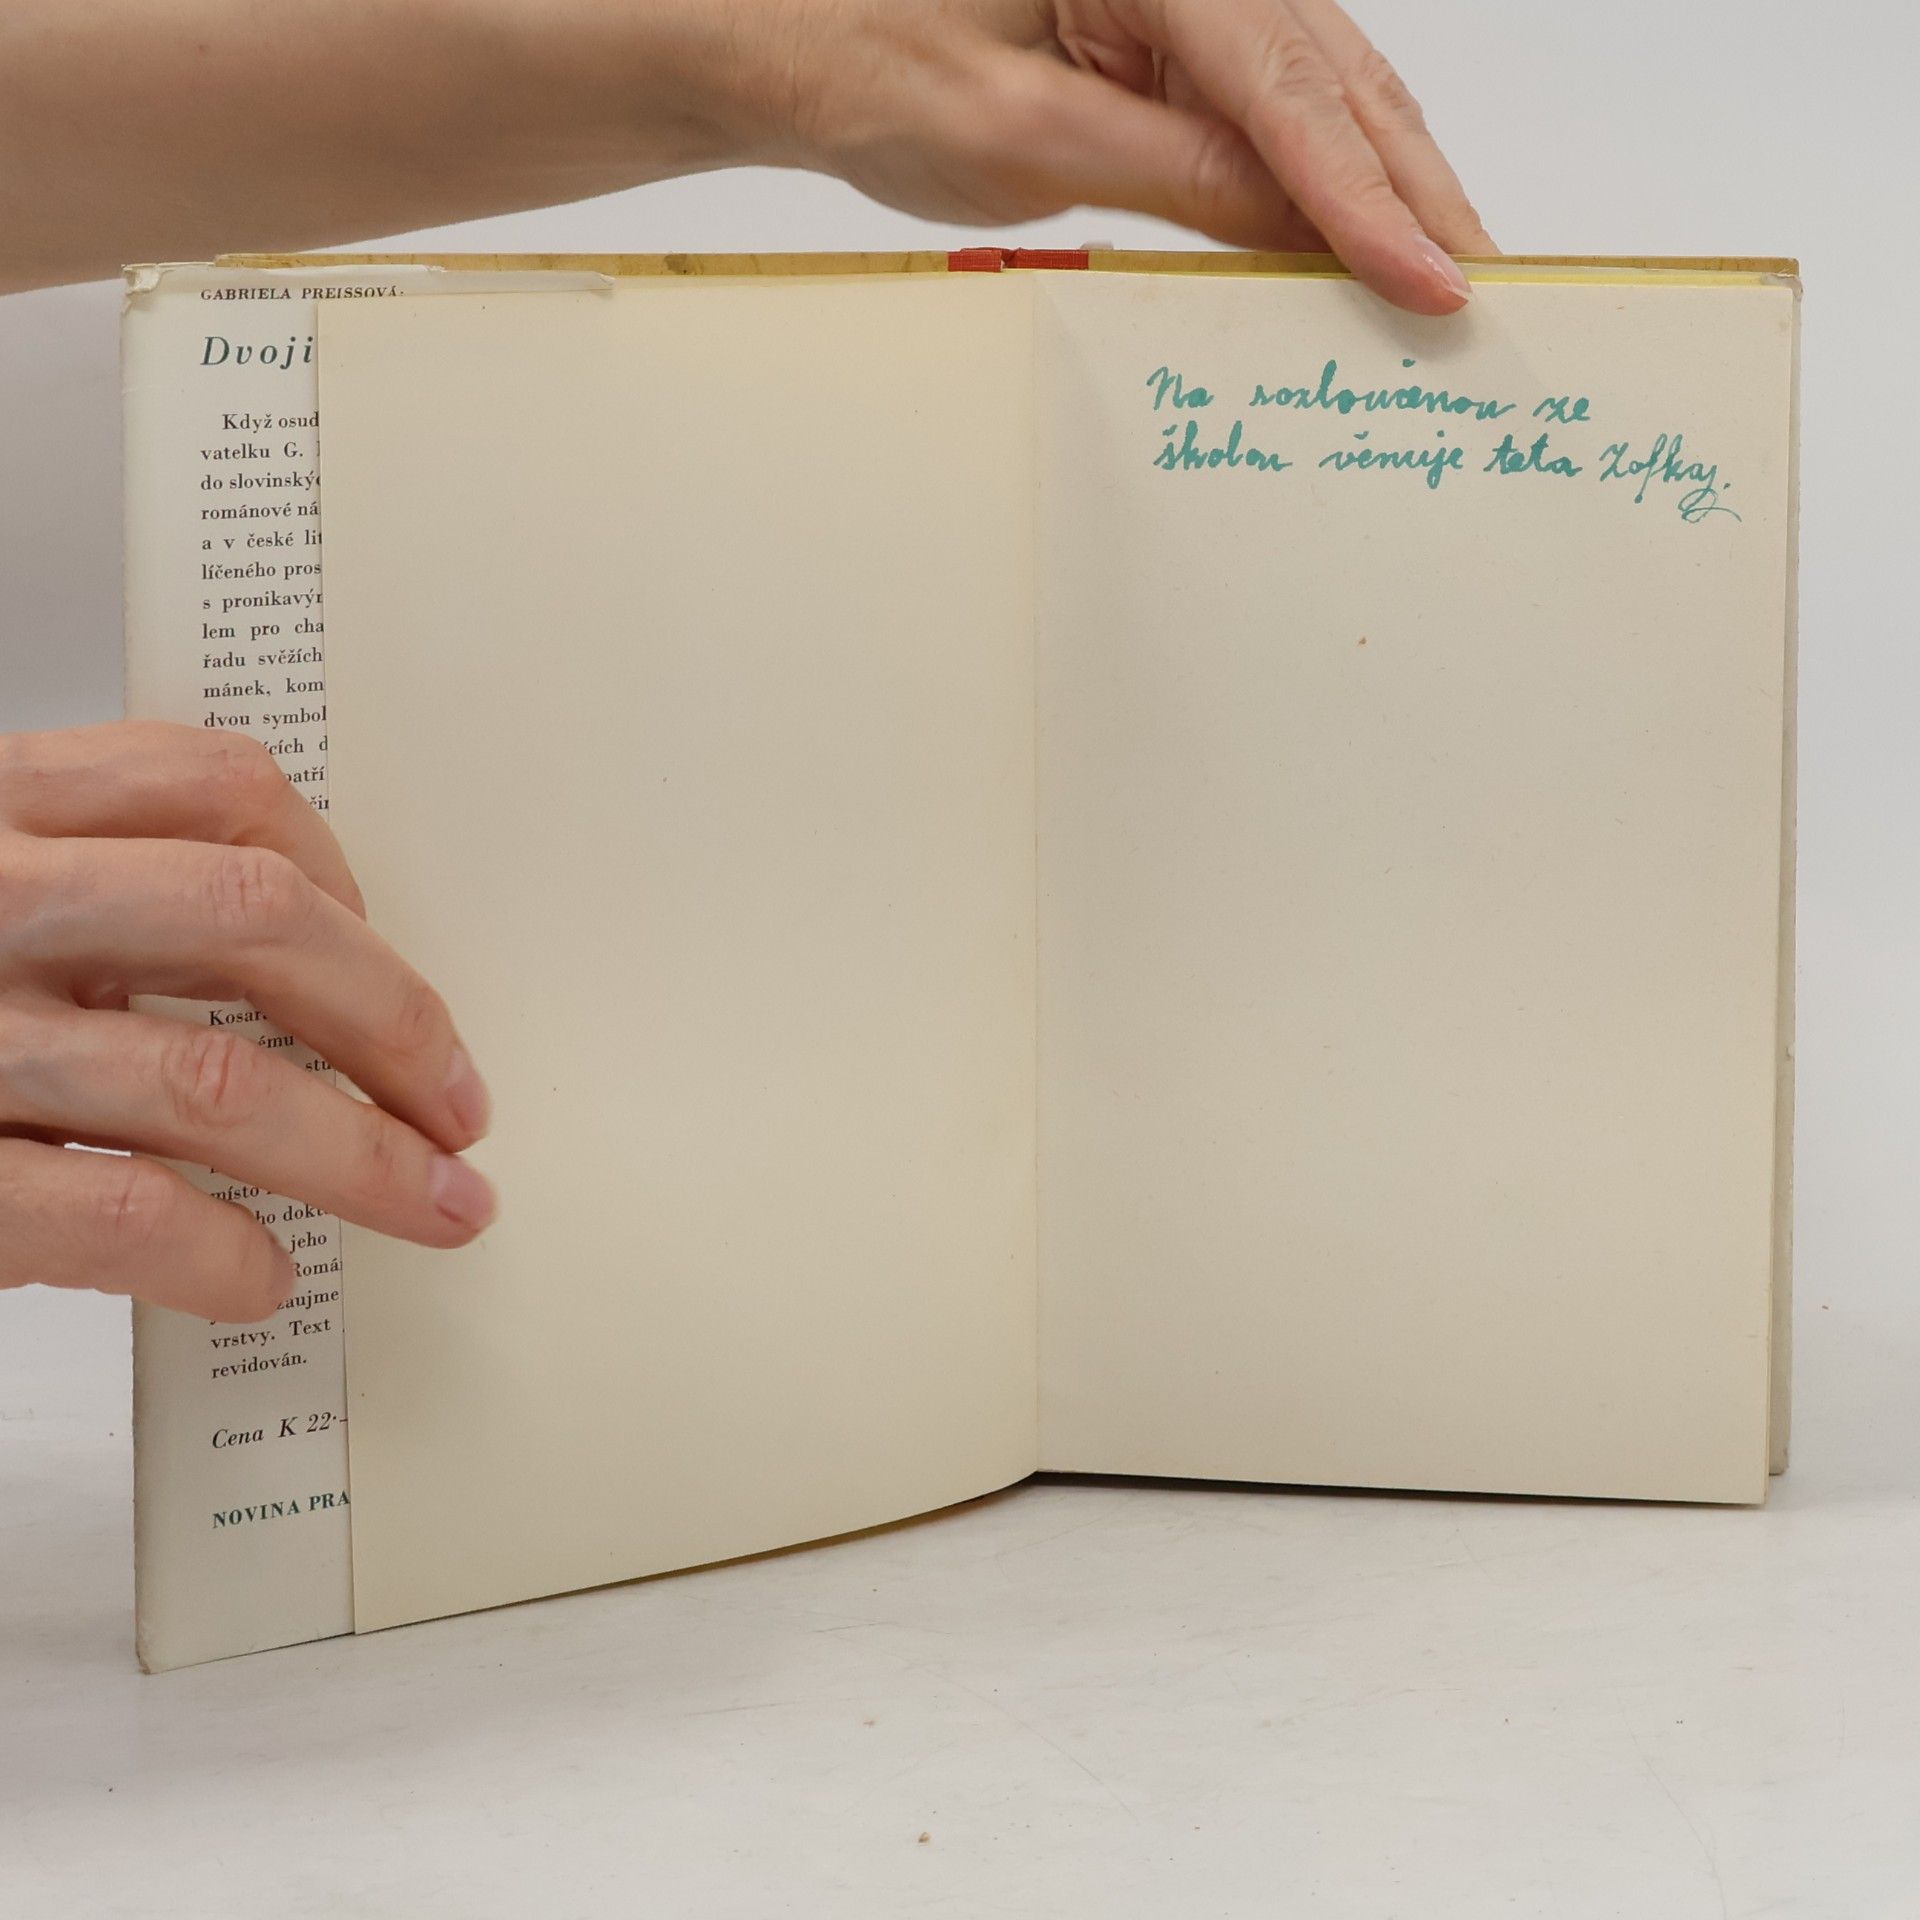 GABRIELA PREISSOVÁ:
Dvoji
Když osud
vatelku G.
do slovinský
románové ná
a v české lit
líčeného pros
s pronikavý
lem pro cha
řadu svěžích
mánek, kom
dvou symbol
ících d
patří
čin
Kosar
ému
stu
místo
ho dokt
jeho
Romá
zaujme
vrstvy. Text
revidován.
Cena K 22·—
NOVINA PRA
Na rozloučenou ze
školou věnuje teta Žofka.